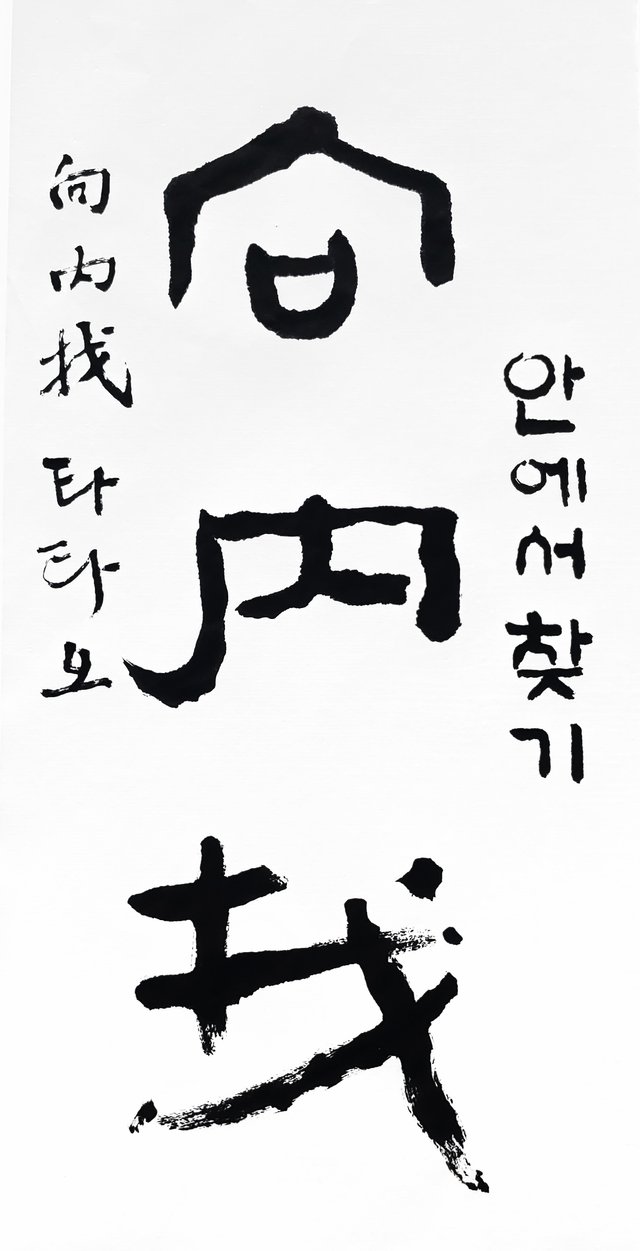 向内找
안에서 찾기
向内找 타타오